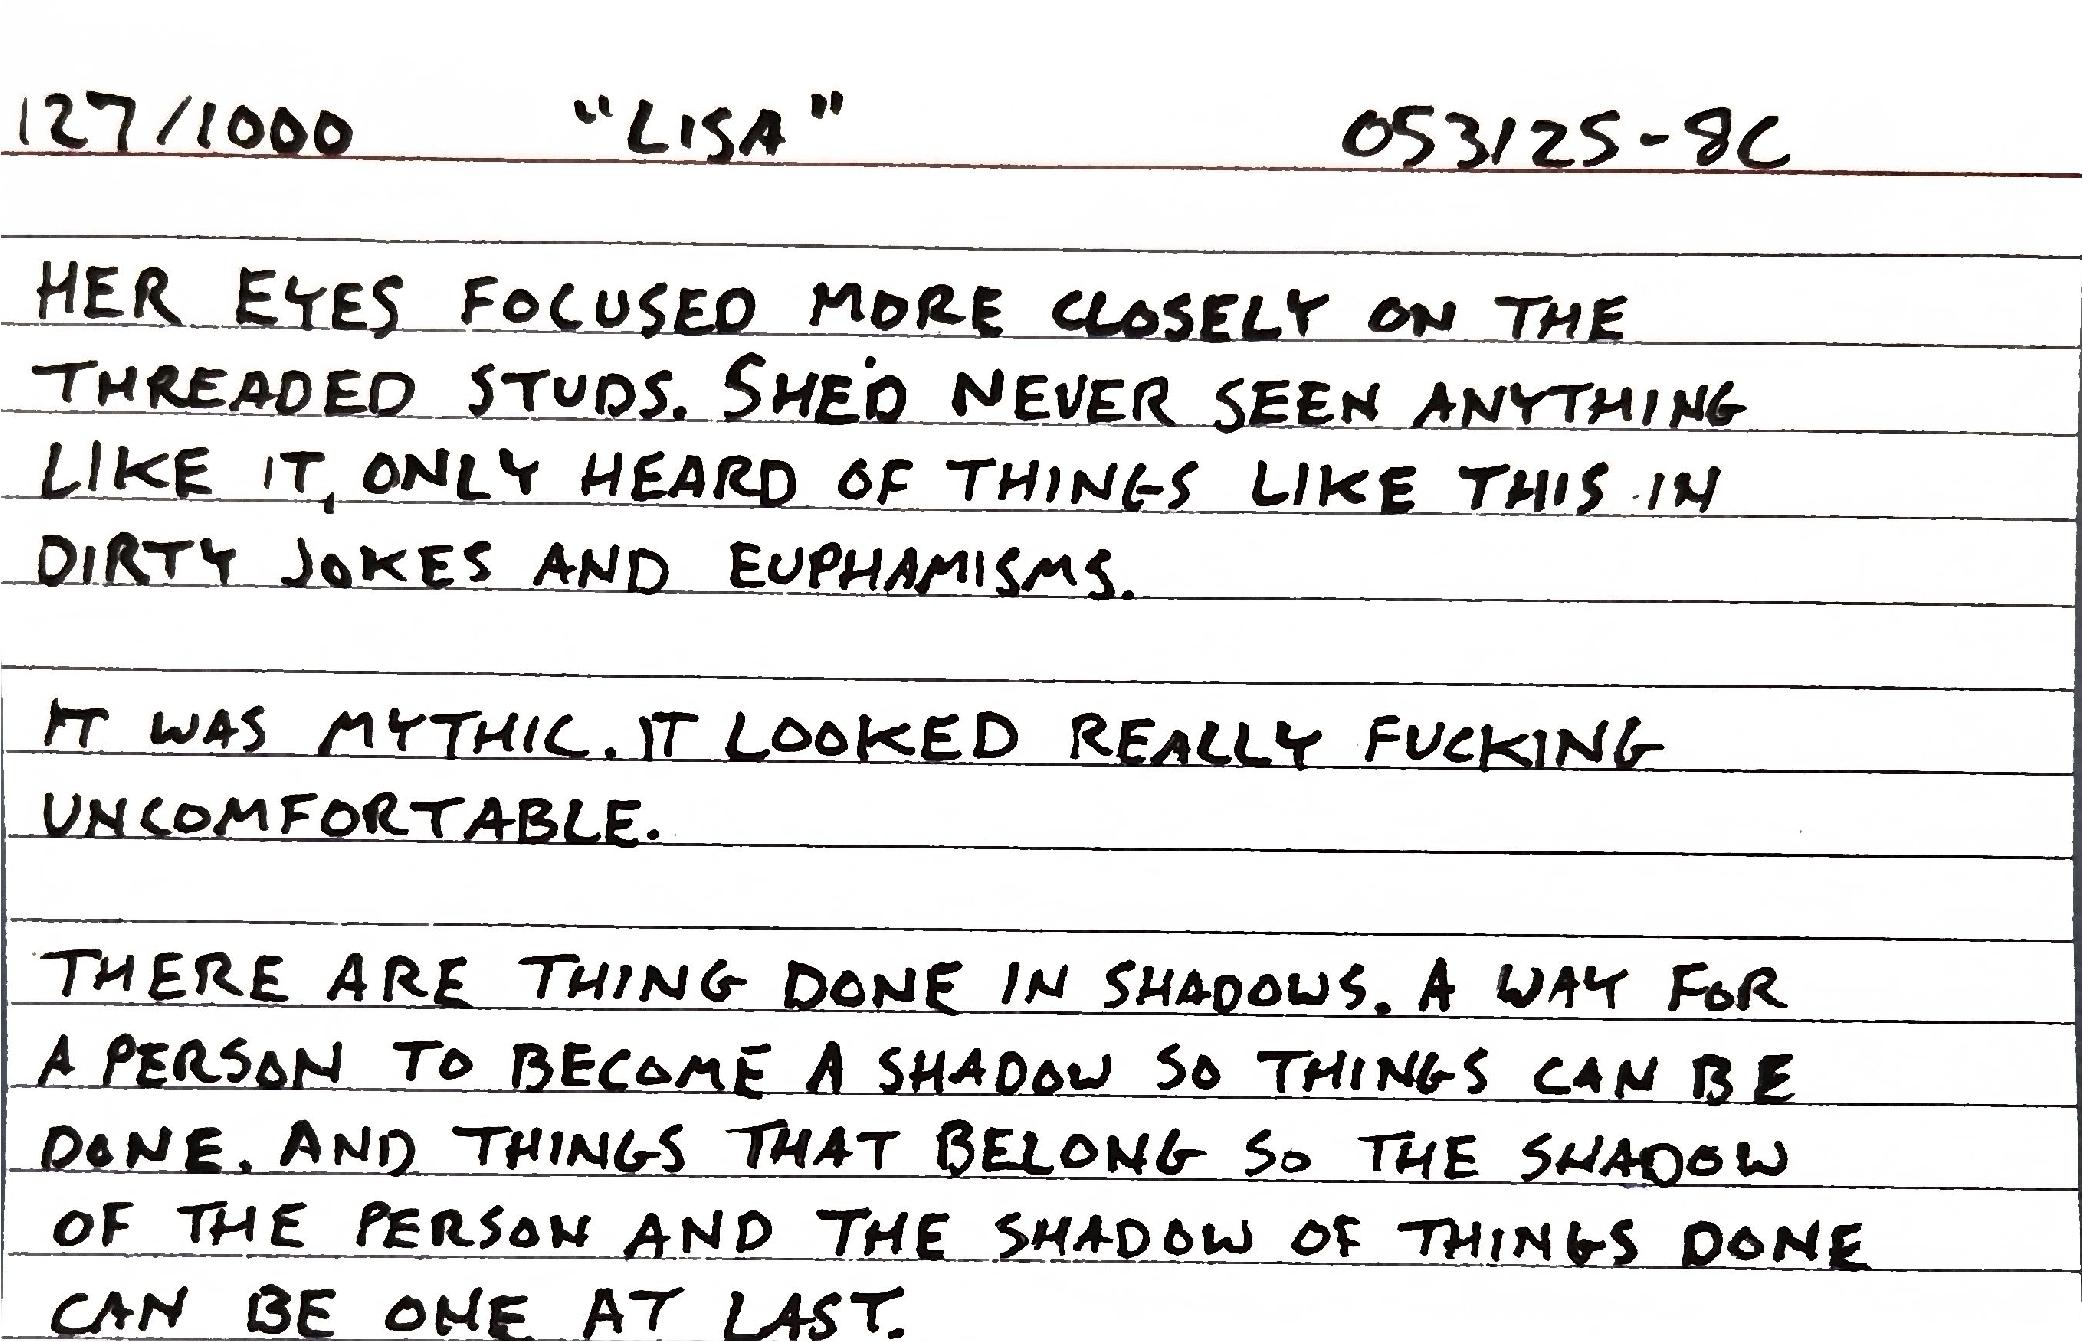 127/1000 "LISA" 053125-8C
HER EYES FOCUSED MORE CLOSELY ON THE
THREADED STUDS. SHE'D NEVER SEEN ANYTHING
LIKE IT, ONLY HEARD OF THINGS LIKE THIS IN
DIRTY JOKES AND EUPHAMISMS.
IT WAS MYTHIC. IT LOOKED REALLY FUCKING
UNCOMFORTABLE.
THERE ARE THING DONE IN SHADOWS. A WAY FOR
A PERSON TO BECOME A SHADOW SO THINGS CAN BE
DONE. AND THINGS THAT BELONG SO THE SHADOW
OF THE PERSON AND THE SHADOW OF THINGS DONE
CAN BE ONE AT LAST.